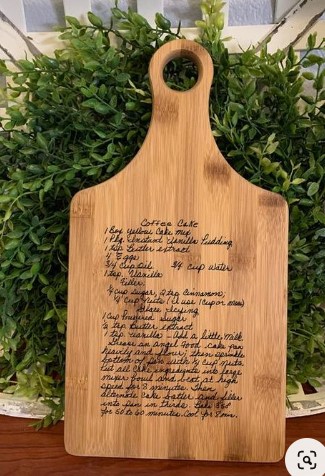 Coffee Cake
1 Box yellow cake mix
1 Pkg. Instant Vanilla Pudding
1 tsp Butter extract
4 Eggs
3/4 cup oil 3/4 cup water
1 tsp. Vanilla
Filler:
1/4 cup sugar, 2 tsp Cinnamon,
1/4 cup Nuts (I use 1 cup or more)
Glaze Icying
1 Cup Powdered Sugar
1/2 tsp Butter extract
1 tsp. vanilla - add a little milk
Grease an angel food cake pan
heavily and flour; then sprinkle
bottom of pan with 1/4 cup nuts.
Put all cake ingredients into large
mixer bowl and beat at high
speed for 8 minutes. Then,
alternate cake batter and filler
into pan in thirds. Bake 350
for 50 to 60 minutes. Cool for 8 min.